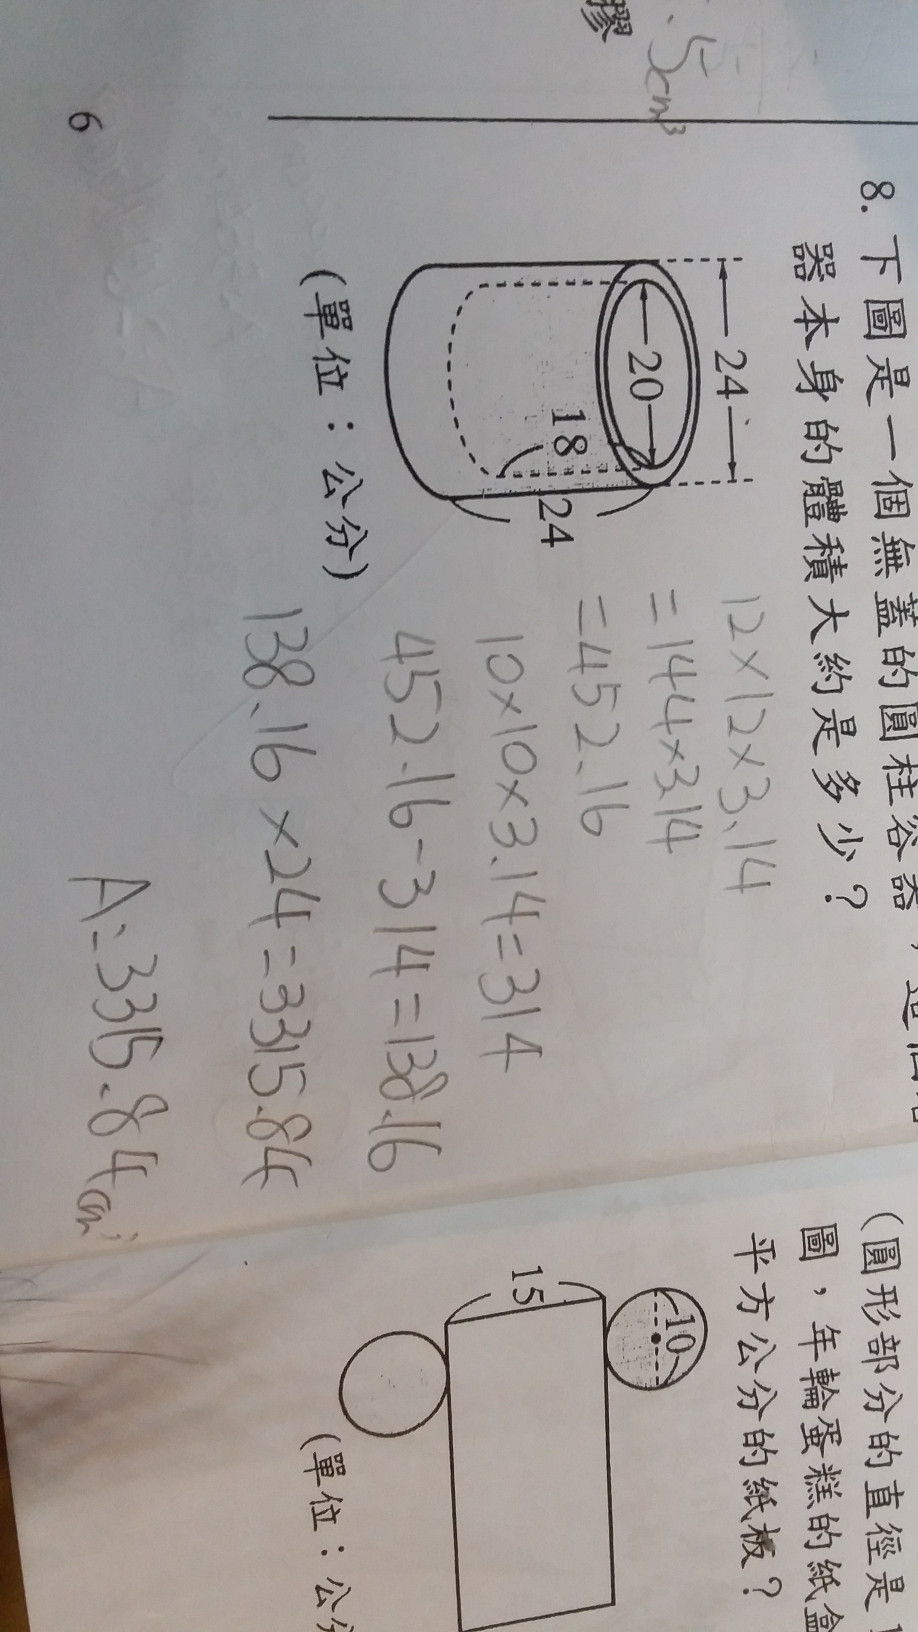 膠
5cm³
8. 下圖是一個無蓋的圓柱容器，這個
器本身的體積大約是多少？
24
20
18
24
(單位：公分)
12×12×3.14
=144×3.14
=452.16
10×10×3.14=314
452.16-314=138.16
138.16×24=3315.84
A:3315.84cm³
6
(圓形部分的直徑是1
圖，年輪蛋糕的紙盒
平方公分的紙板？
10
15
(單位：公分